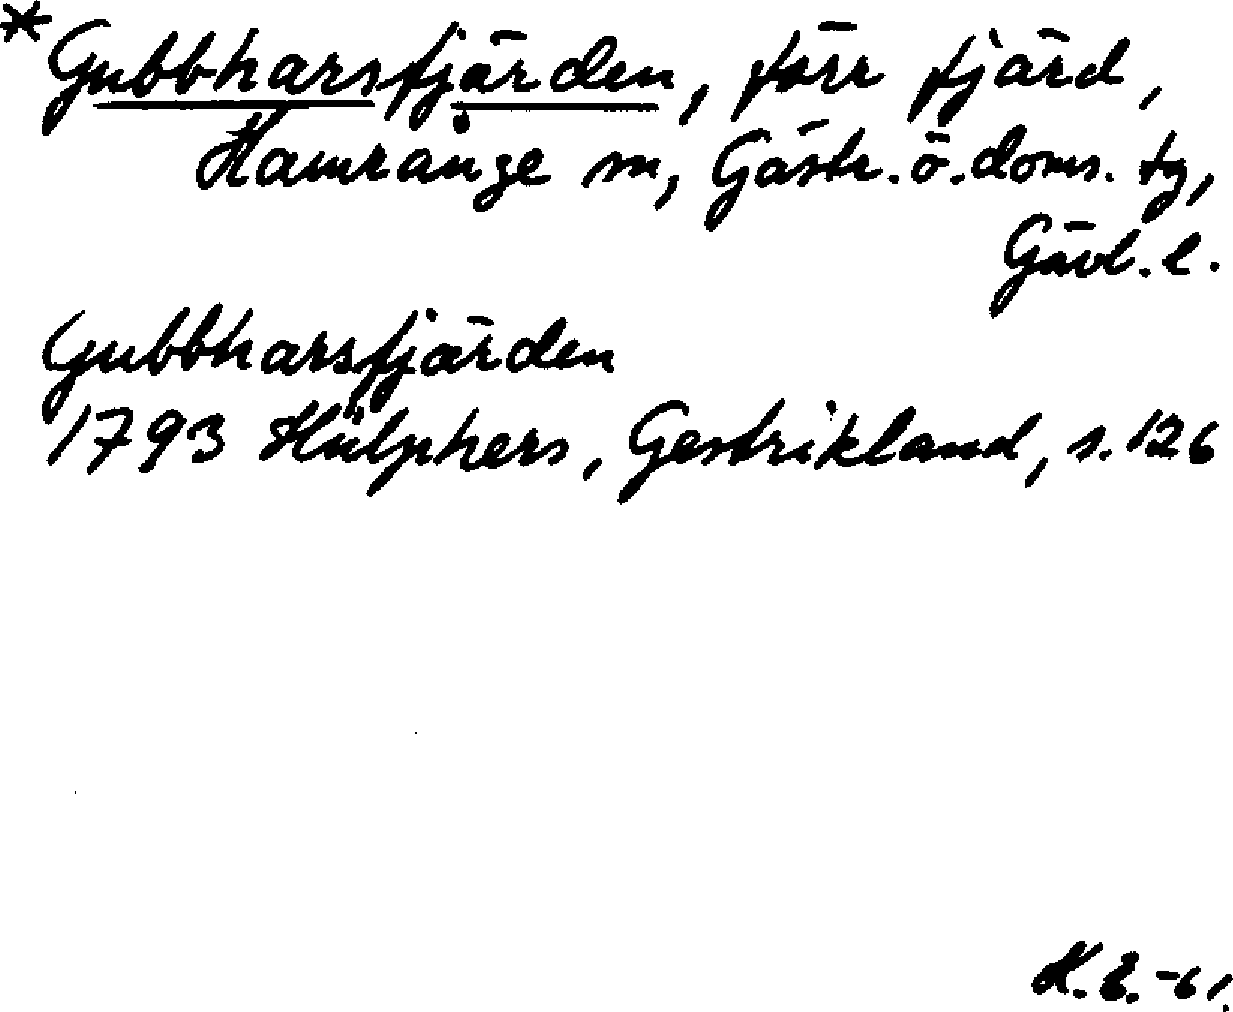 *Gubbharsfjärden, förr fjärd,
Hamrånge sn, Gästr. ö. doms. tg,
Gävl. l.
Gubbharsfjärden
1793 Hülphers, Gestrikland, s. 126
H.E. -61.